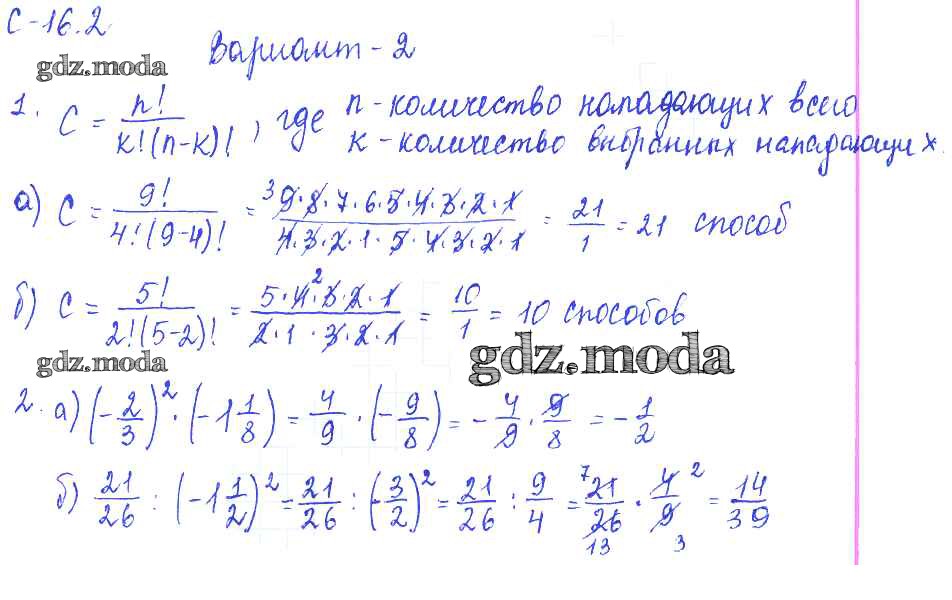 С-16.2
Вариант - 2
gdz.moda
1. C = n! / k!(n-k)! , где n - количество нападающих всего
k - количество выбранных нападающих.
а) C = 9! / 4!(9-4)! = ³9·8·7·6·5·4·3·2·1 / 4·3·2·1·5·4·3·2·1 = 21/1 = 21 способ
б) C = 5! / 2!(5-2)! = 5·4²·3·2·1 / 2·1·3·2·1 = 10/1 = 10 способов
gdz.moda
gdz.moda
2. а) (-2/3)² · (-1 1/8) = 4/9 · (-9/8) = -4/9 · 9/8 = -1/2
б) 21/26 : (-1 1/2)² = 21/26 : (-3/2)² = 21/26 : 9/4 = ⁷21/26₁₃ · 4²/9₃ = 14/39